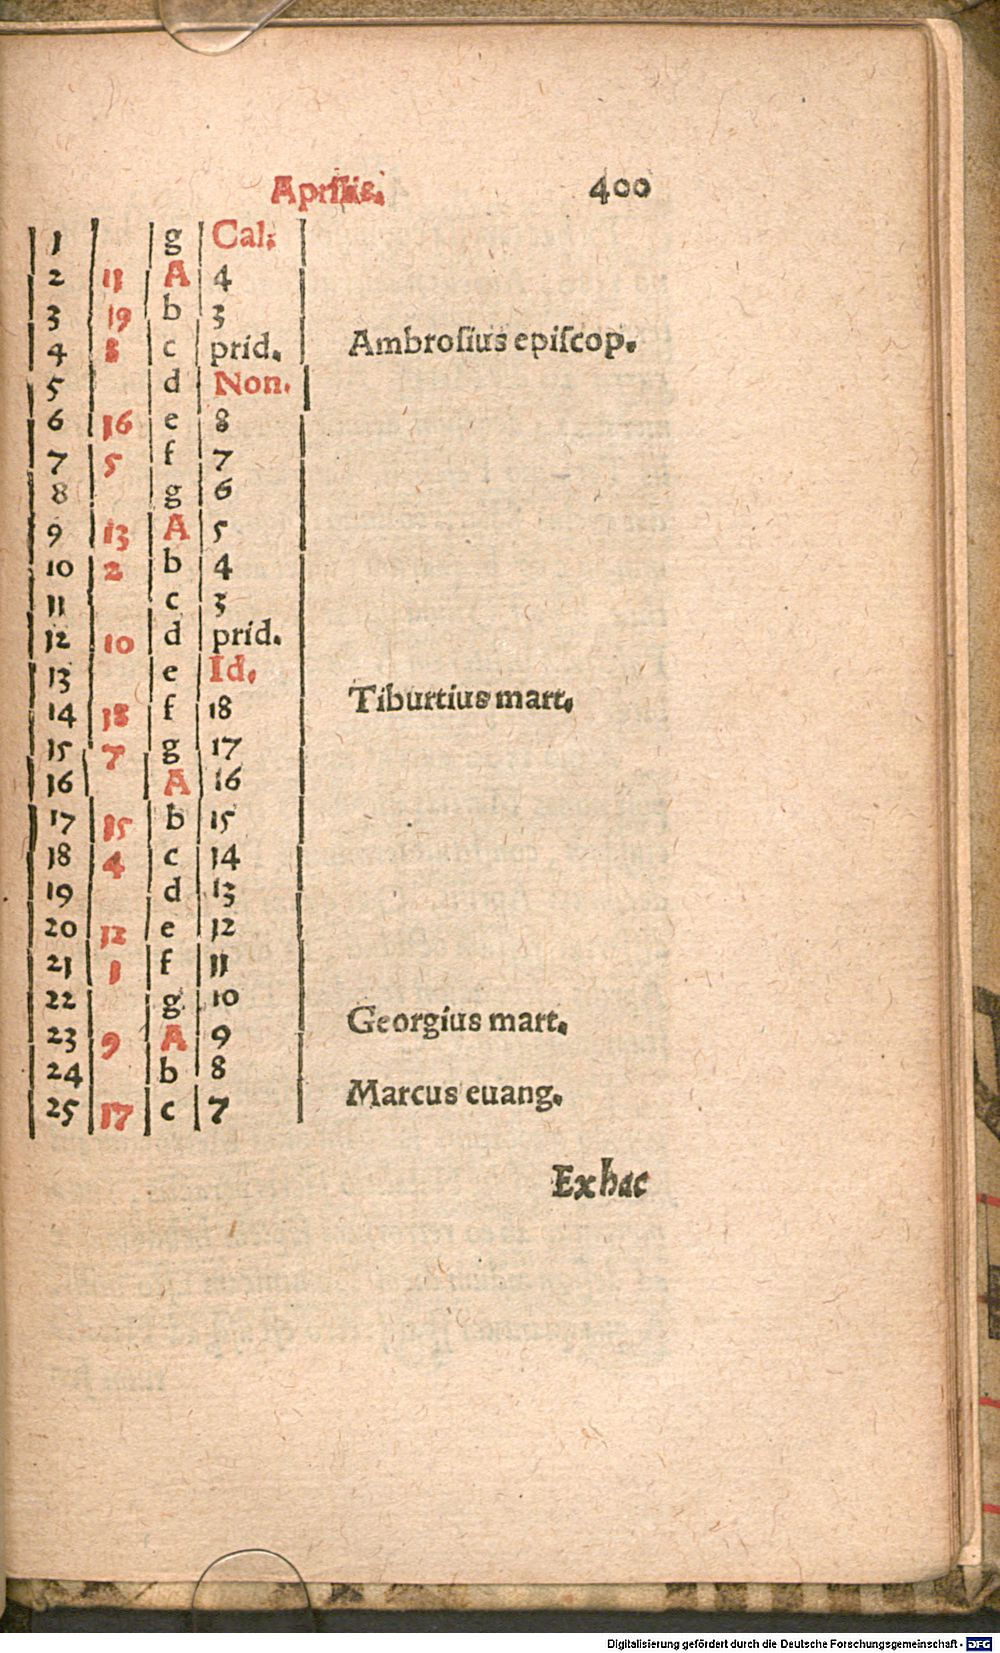 Aprilis. 400
1 g Cal.
2 11 A 4
3 19 b 3
4 8 c prid. Ambroſius epiſcop.
5 d Non.
6 16 e 8
7 5 f 7
8 g 6
9 13 A 5
10 2 b 4
11 c 3
12 10 d prid.
13 e Id.
14 18 f 18 Tiburtius mart.
15 7 g 17
16 A 16
17 15 b 15
18 4 c 14
19 d 13
20 12 e 12
21 1 f 11
22 g 10
23 9 A 9 Georgius mart.
24 b 8
25 17 c 7 Marcus euang.
Ex hac
Digitalisierung gefördert durch die Deutsche Forschungsgemeinschaft - DFG